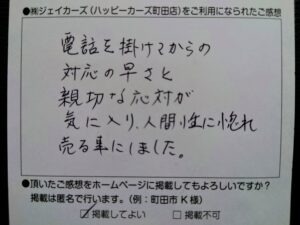 ●㈱ジェイカーズ（ハッピーカーズ町田店）をご利用になられたご感想
電話を掛けてからの
対応の早さと
親切な応対が
気に入り、人間性に惚れ
売る事にしました。
●頂いたご感想をホームページに掲載してもよろしいですか？
掲載は匿名で行います。（例：町田市 K 様）
☑掲載してよい　□掲載不可